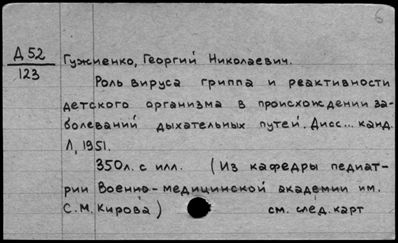 6
Д 52
123
Гужиенко, Георгий Николаевич.
Роль вируса гриппа и реактивности
детского организма в происхождении за-
болеваний дыхательных путей. Дисс... канд.
Л, 1951.
350л. с илл. (Из кафедры педиат-
рии Военно-медицинской академии им.
С.М. Кирова) см. след. карт